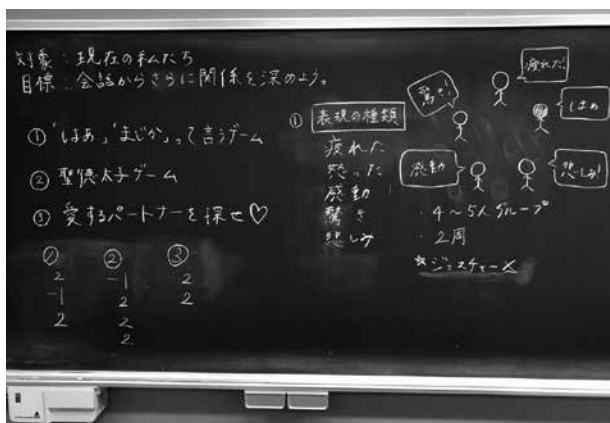 対象：現在の私たち
目標：会話からさらに関係を深めよう。
①「はぁ」「まじか」って言うゲーム
②聖徳太子ゲーム
③愛するパートナーを探せ♡
① ② ③
2 -1 2
-1 2 2
2 2
2
① 表現の種類
疲れた
怒った
感動
驚き
悲しみ
驚き!
疲れた!
はぁ
感動
悲しみ!
・4〜5人グループ
・2周
☆ジェスチャー×